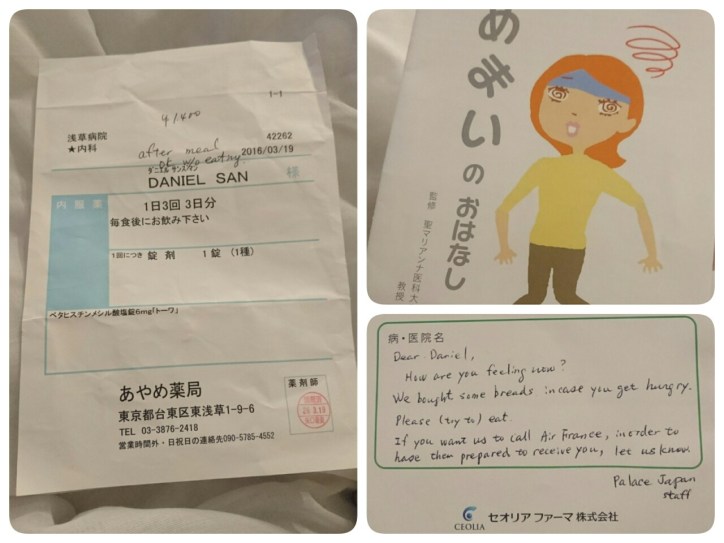 1-1
4/400
浅草病院
42262
★内科
2016/03/19
after meal
ok w/o eating
DANIEL SAN 様
内服薬
1日3回 3日分
毎食後にお飲み下さい
1回につき 錠剤 1錠 (1種)
ベタヒスチンメシル酸塩錠6mg「トーワ」
あやめ薬局
薬剤師
東京都台東区東浅草1-9-6
TEL 03-3876-2418
営業時間外・日祝日の連絡先090-5785-4552
めまいのおはなし
監修 聖マリアンナ医科大
教授
病・医院名
Dear Daniel,
How are you feeling now?
We bought some breads incase you get hungry.
Please (try to) eat.
If you want us to call Air France, in order to
have them prepared to receive you, let us know.
Palace Japan
staff
CEOLIA セオリア ファーマ 株式会社